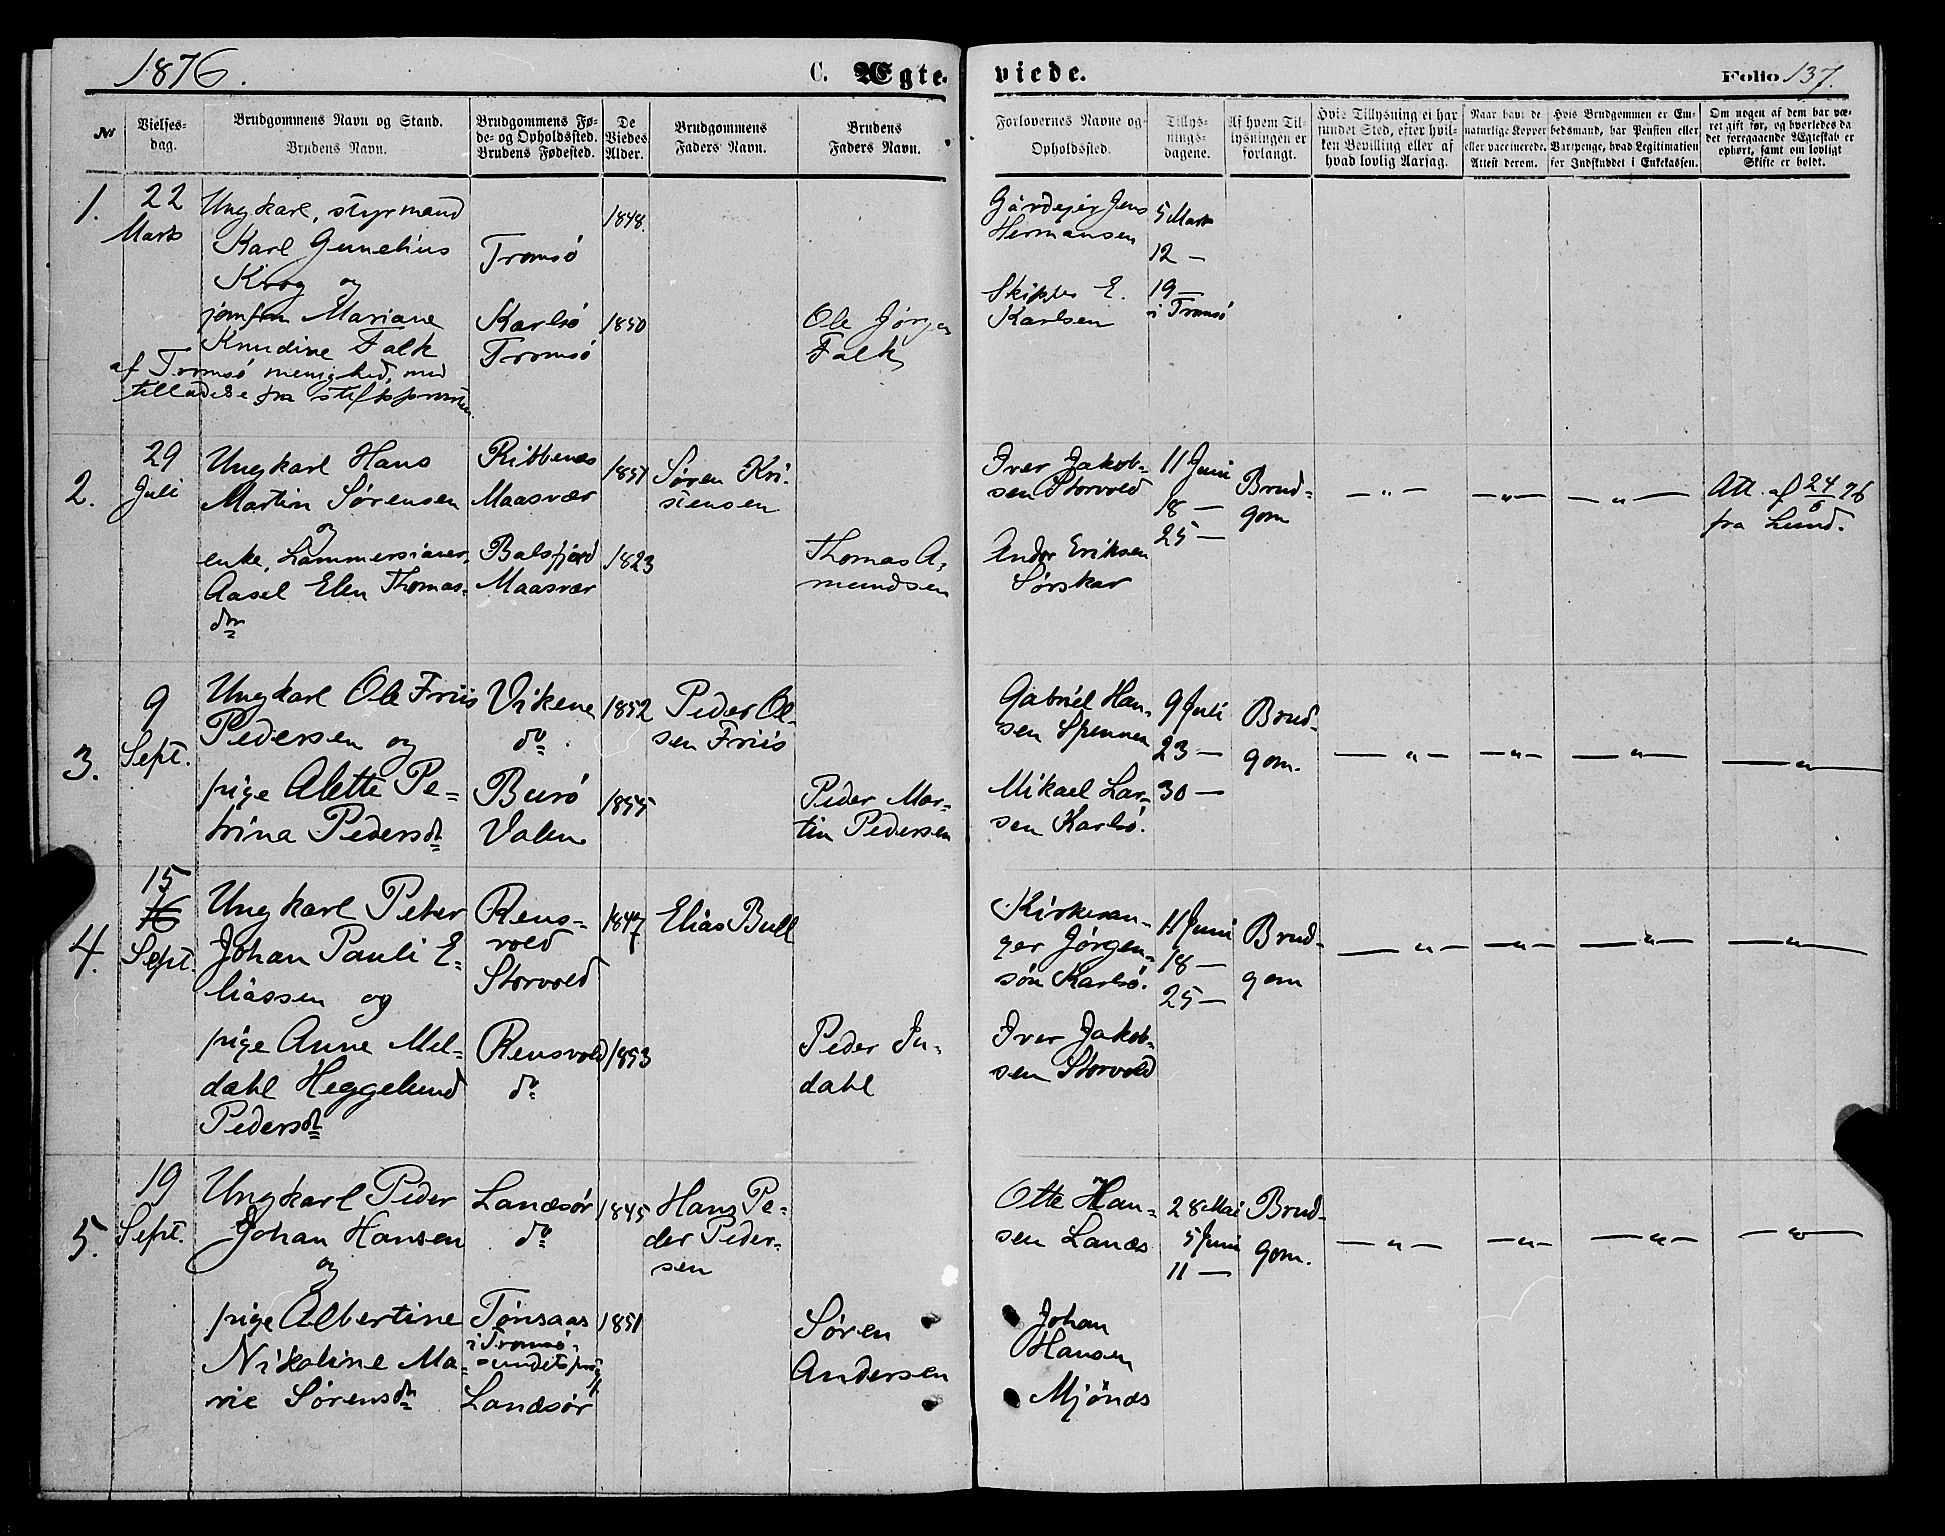 1876.
C. Ægte-
viede.
Folio 137.
№
Vielses-
dag.
Brudgommens Navn og Stand.
Brudens Navn.
Brudgommens Fø-
de- og Opholdssted.
Brudens Fødested.
De
Viedes
Alder.
Brudgommens
Faders Navn.
Brudens
Faders Navn.
Forlovernes Navne og
Opholdssted.
Tillys-
nings-
dagene.
Af hvem Til-
lysningen er
forlangt.
Hvis Tillysning ei har
fundet Sted, efter hvil-
ken Bevilling eller af
hvad lovlig Aarsag.
Naar havt de
naturlige Kopper
eller vaccinerede.
Attest derom.
Hvis Brudgommen er Em-
bedsmand, har Pension eller
Vartpenge, hvad Legitimation
for Indskuddet i Enkekassen.
Om nogen af dem har væ-
ret gift før, og hvorledes da
det foregaaende Ægteskab er
ophørt, samt om lovligt
Skifte er holdt.
1.
22
Marts
Ungkarl, styrmand
Karl Gunelius
Krog og
jomfru Mariane
Knudine Falk
af Tromsö menighed, med
tilladelse fra stiftsprovsten.
Tromsö
Karlsö
Tromsö
1848.
1850
Ole Jørgen
Falk
Gårdejer Jens
Hermansen
Skipper E.
Karlsen
5 Marts
12 —
19 —
i Tromsö
2.
29
Juli
Ungkarl Hans
Martin Sørensen
og
enke, Lammersianer,
Aasel Elen Thomas-
dtr
Ribbenæs
Maasvær
Balsfjord
Maasvær
1851
1823
Søren Kri-
stensen
Thomas A-
mundsen
Iver Jakob-
sen Storvold
Andor Eriksen
Sørskar
11 Juni
18 —
25 —
Brud-
gom
— " —
— " —
— " —
Att. af 24/6 76
fra Lund.
3.
9
Sept.
Ungkarl Ole Friis
Pedersen og
pige Alette Pe-
trina Pedersdt
Vikene
do
Burö
Valen
1852
1855
Peder Ol-
sen Friis
Peder Mar-
tin Pedersen
Gabriel Han-
sen Spennen
Mikael Lar-
sen Karlsö.
9 Juli
23 —
30 —
Brud-
gom.
— " —
— " —
— " —
— " —
4.
15
16
Sept.
Ungkarl Peter
Johan Pauli E-
liassen og
pige Anne Mel-
dahl Heggelund
Pedersdt
Rens-
vold
Storvold
Rensvold
do
1847
1853
Elias Bull
Peder In-
dahl
Kirkesan-
ger Jørgen-
sön Karlsö.
Iver Jakob-
sen Storvold
11 Juni
18 —
25 —
Brud-
gom
— " —
— " —
— " —
— " —
5.
19
Sept.
Ungkarl Peder
Johan Hansen
og
pige Albertine
Nikoline Ma-
rie Sørensdt
Lanæsør
do
Tönsaas
i Tromsö-
sundets præstegj.
Lanæsør
1845
1851
Hans Pe-
der Peder-
sen
Søren
Andersen
Otte Han-
sen Lanæs
Johan
Hansen
Mjönæs
28 Mai
5 Juni
11 —
Brud-
gom.
— " —
— " —
— " —
— " —